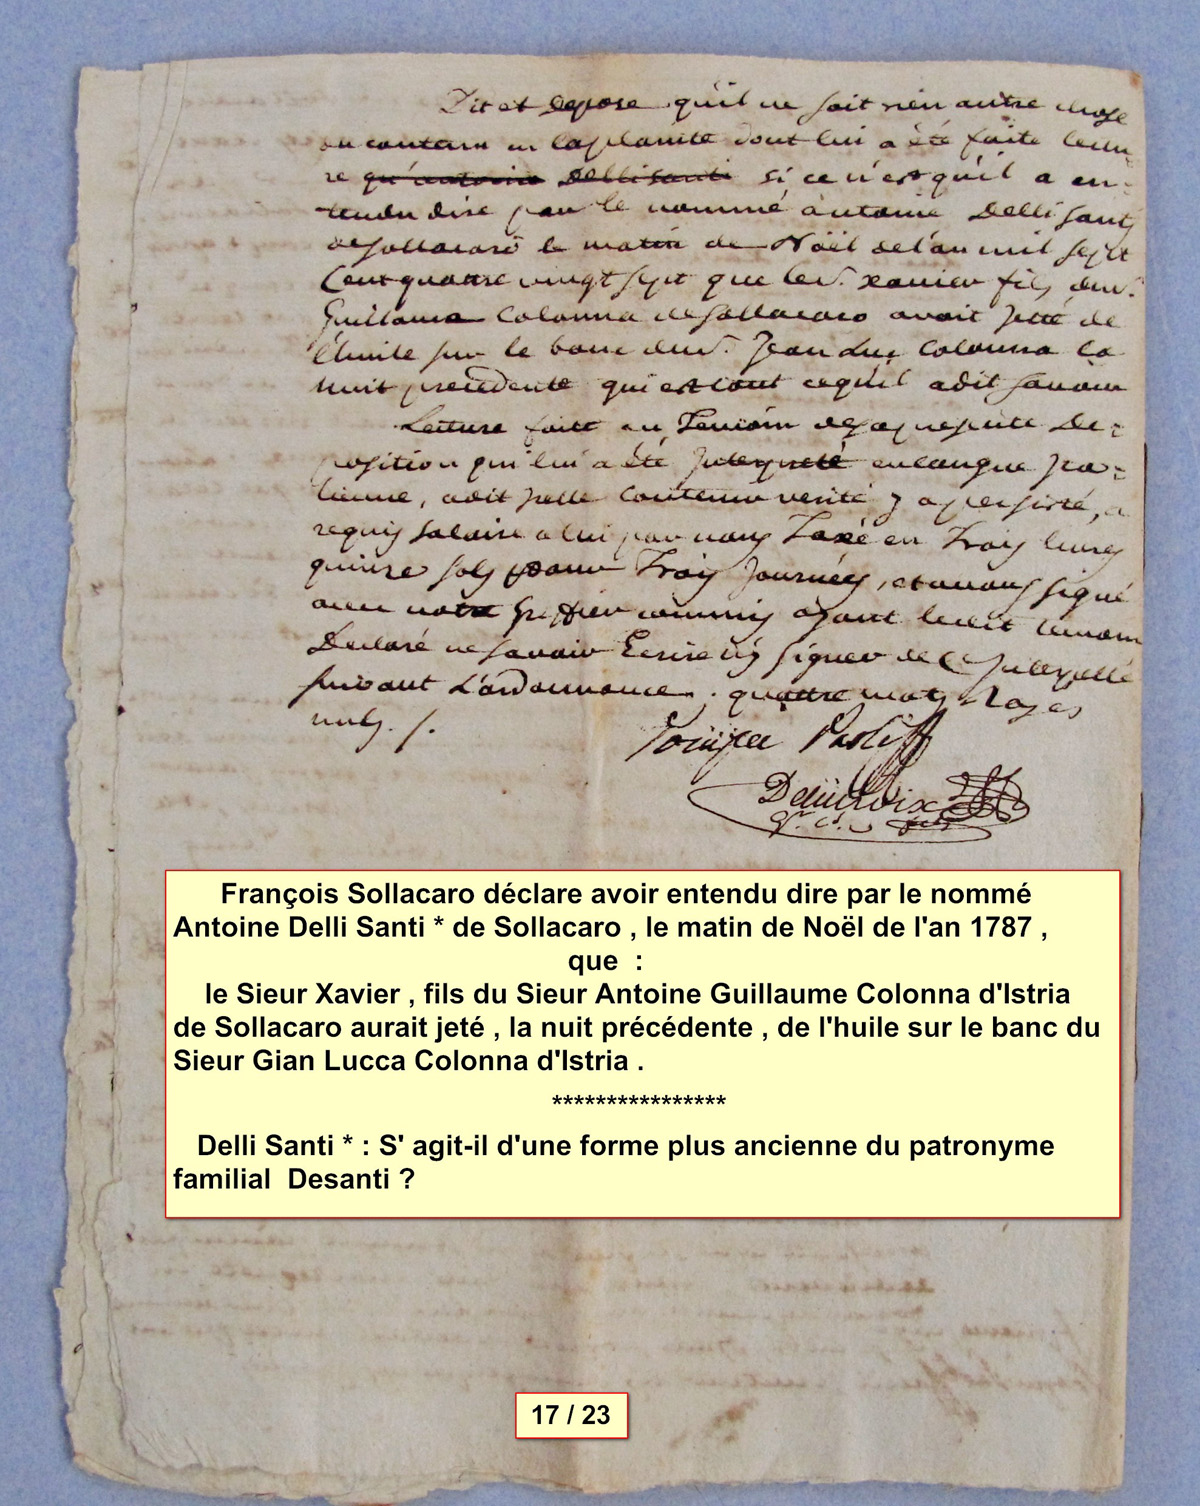 Dit et depose qu'il ne sait rien autre chose
au contenu en la plainte dont lui a été faite lectu-
re qu'antoine Dellisanti si ce n'est qu'il a en-
tendu dire par le nommé antoine Delli Santi
de sollacaro le matin de Noël de l'an mil sept
Cent quattre vingt sept que le sr. xavier fils du sr.
Guillaume Colonna de sollacaro avoit jetté de
l'huile sur le banc du sr. Jean Luc Colonna la
nuit precedente qui est tout ce qu'il a dit savoir
Lecture faitte au Temoin de sa presente De-
position qui lui a été Interpreté en langue Ita-
lienne, a dit Icelle Contenir verité y a persisté, a
requis salaire a lui par nous Taxé en Trois livres
quinze sols pour Trois Journées, et avons signé
avec notre Greffier commis ayant le dit temoin
Declaré ne savoir Ecrire ni signer de ce Interpellé
suivant L'ordonnance. quattre mots Rayés
nuls ./.
Paoli
Delacroix
François Sollacaro déclare avoir entendu dire par le nommé
Antoine Delli Santi * de Sollacaro , le matin de Noël de l'an 1787 ,
que :
le Sieur Xavier , fils du Sieur Antoine Guillaume Colonna d'Istria
de Sollacaro aurait jeté , la nuit précédente , de l'huile sur le banc du
Sieur Gian Lucca Colonna d'Istria .
****************
Delli Santi * : S' agit-il d'une forme plus ancienne du patronyme
familial Desanti ?
17 / 23